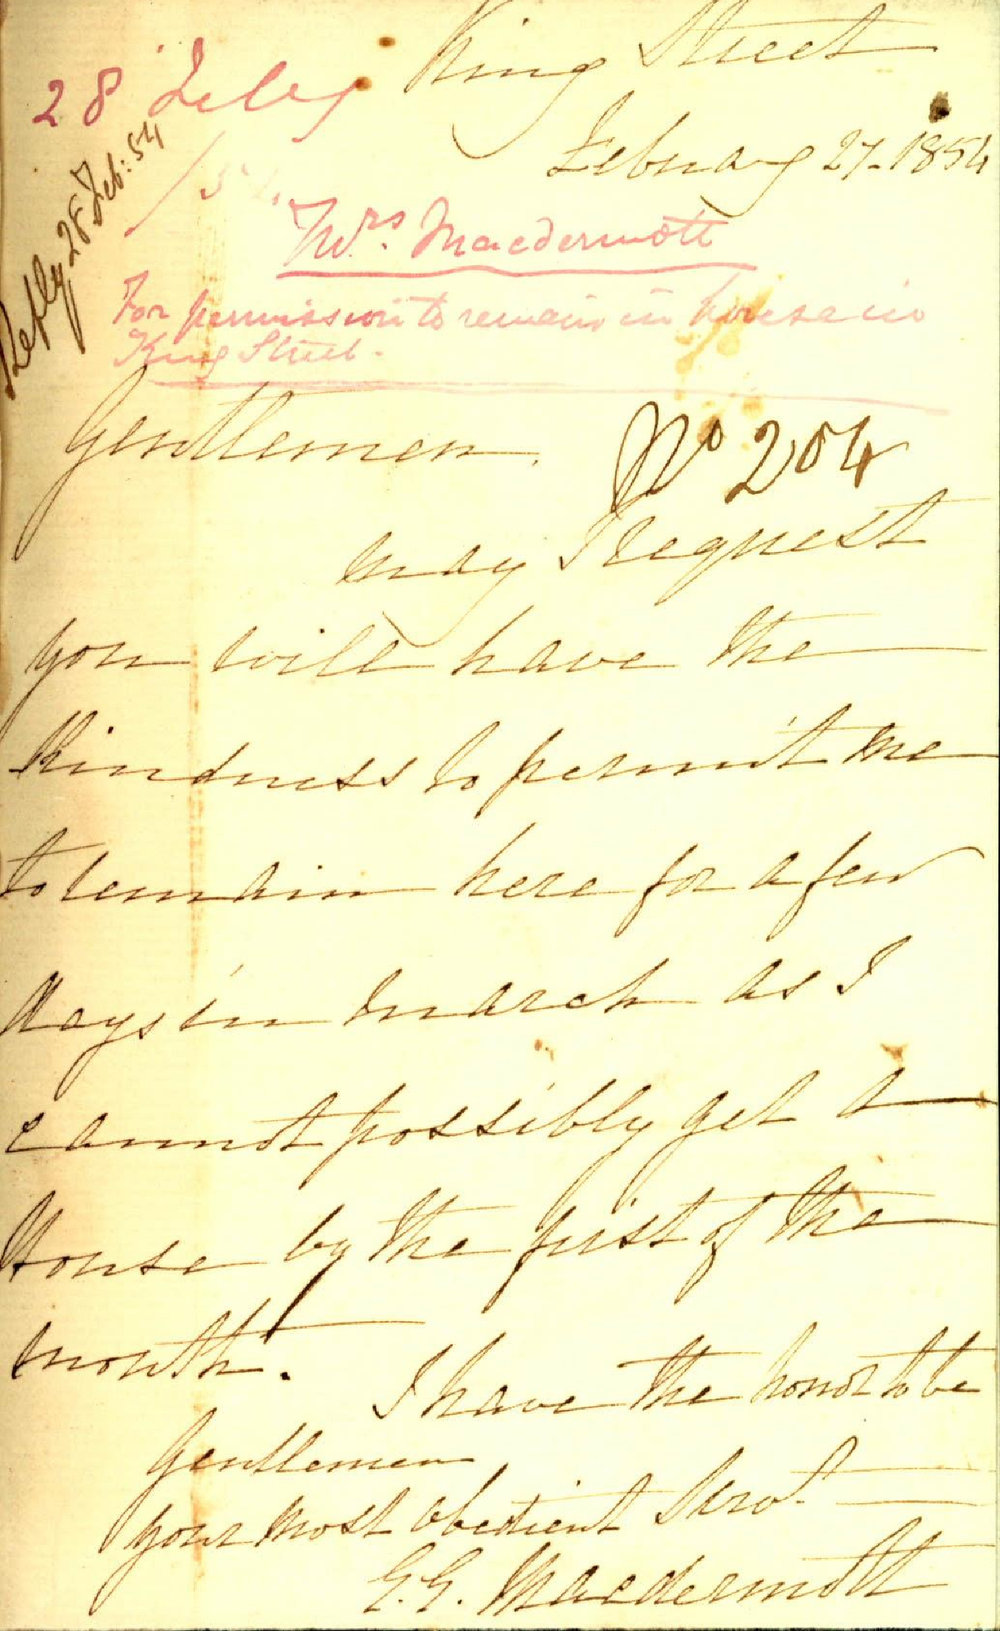 King Street
28 Feby
February 27-1854
/54.
Reply 28 Feb: 54
Mrs. Macdermott
For permission to remain in house in
King Street.
Gentlemen.
No 204
May I request
you will have the
Kindness to permit me
to remain here for a few
days in March as I
cannot possibly get a
House by the first of the
month.
I have the honor to be
Gentlemen
your most obedient Servt.
G.G. Macdermott